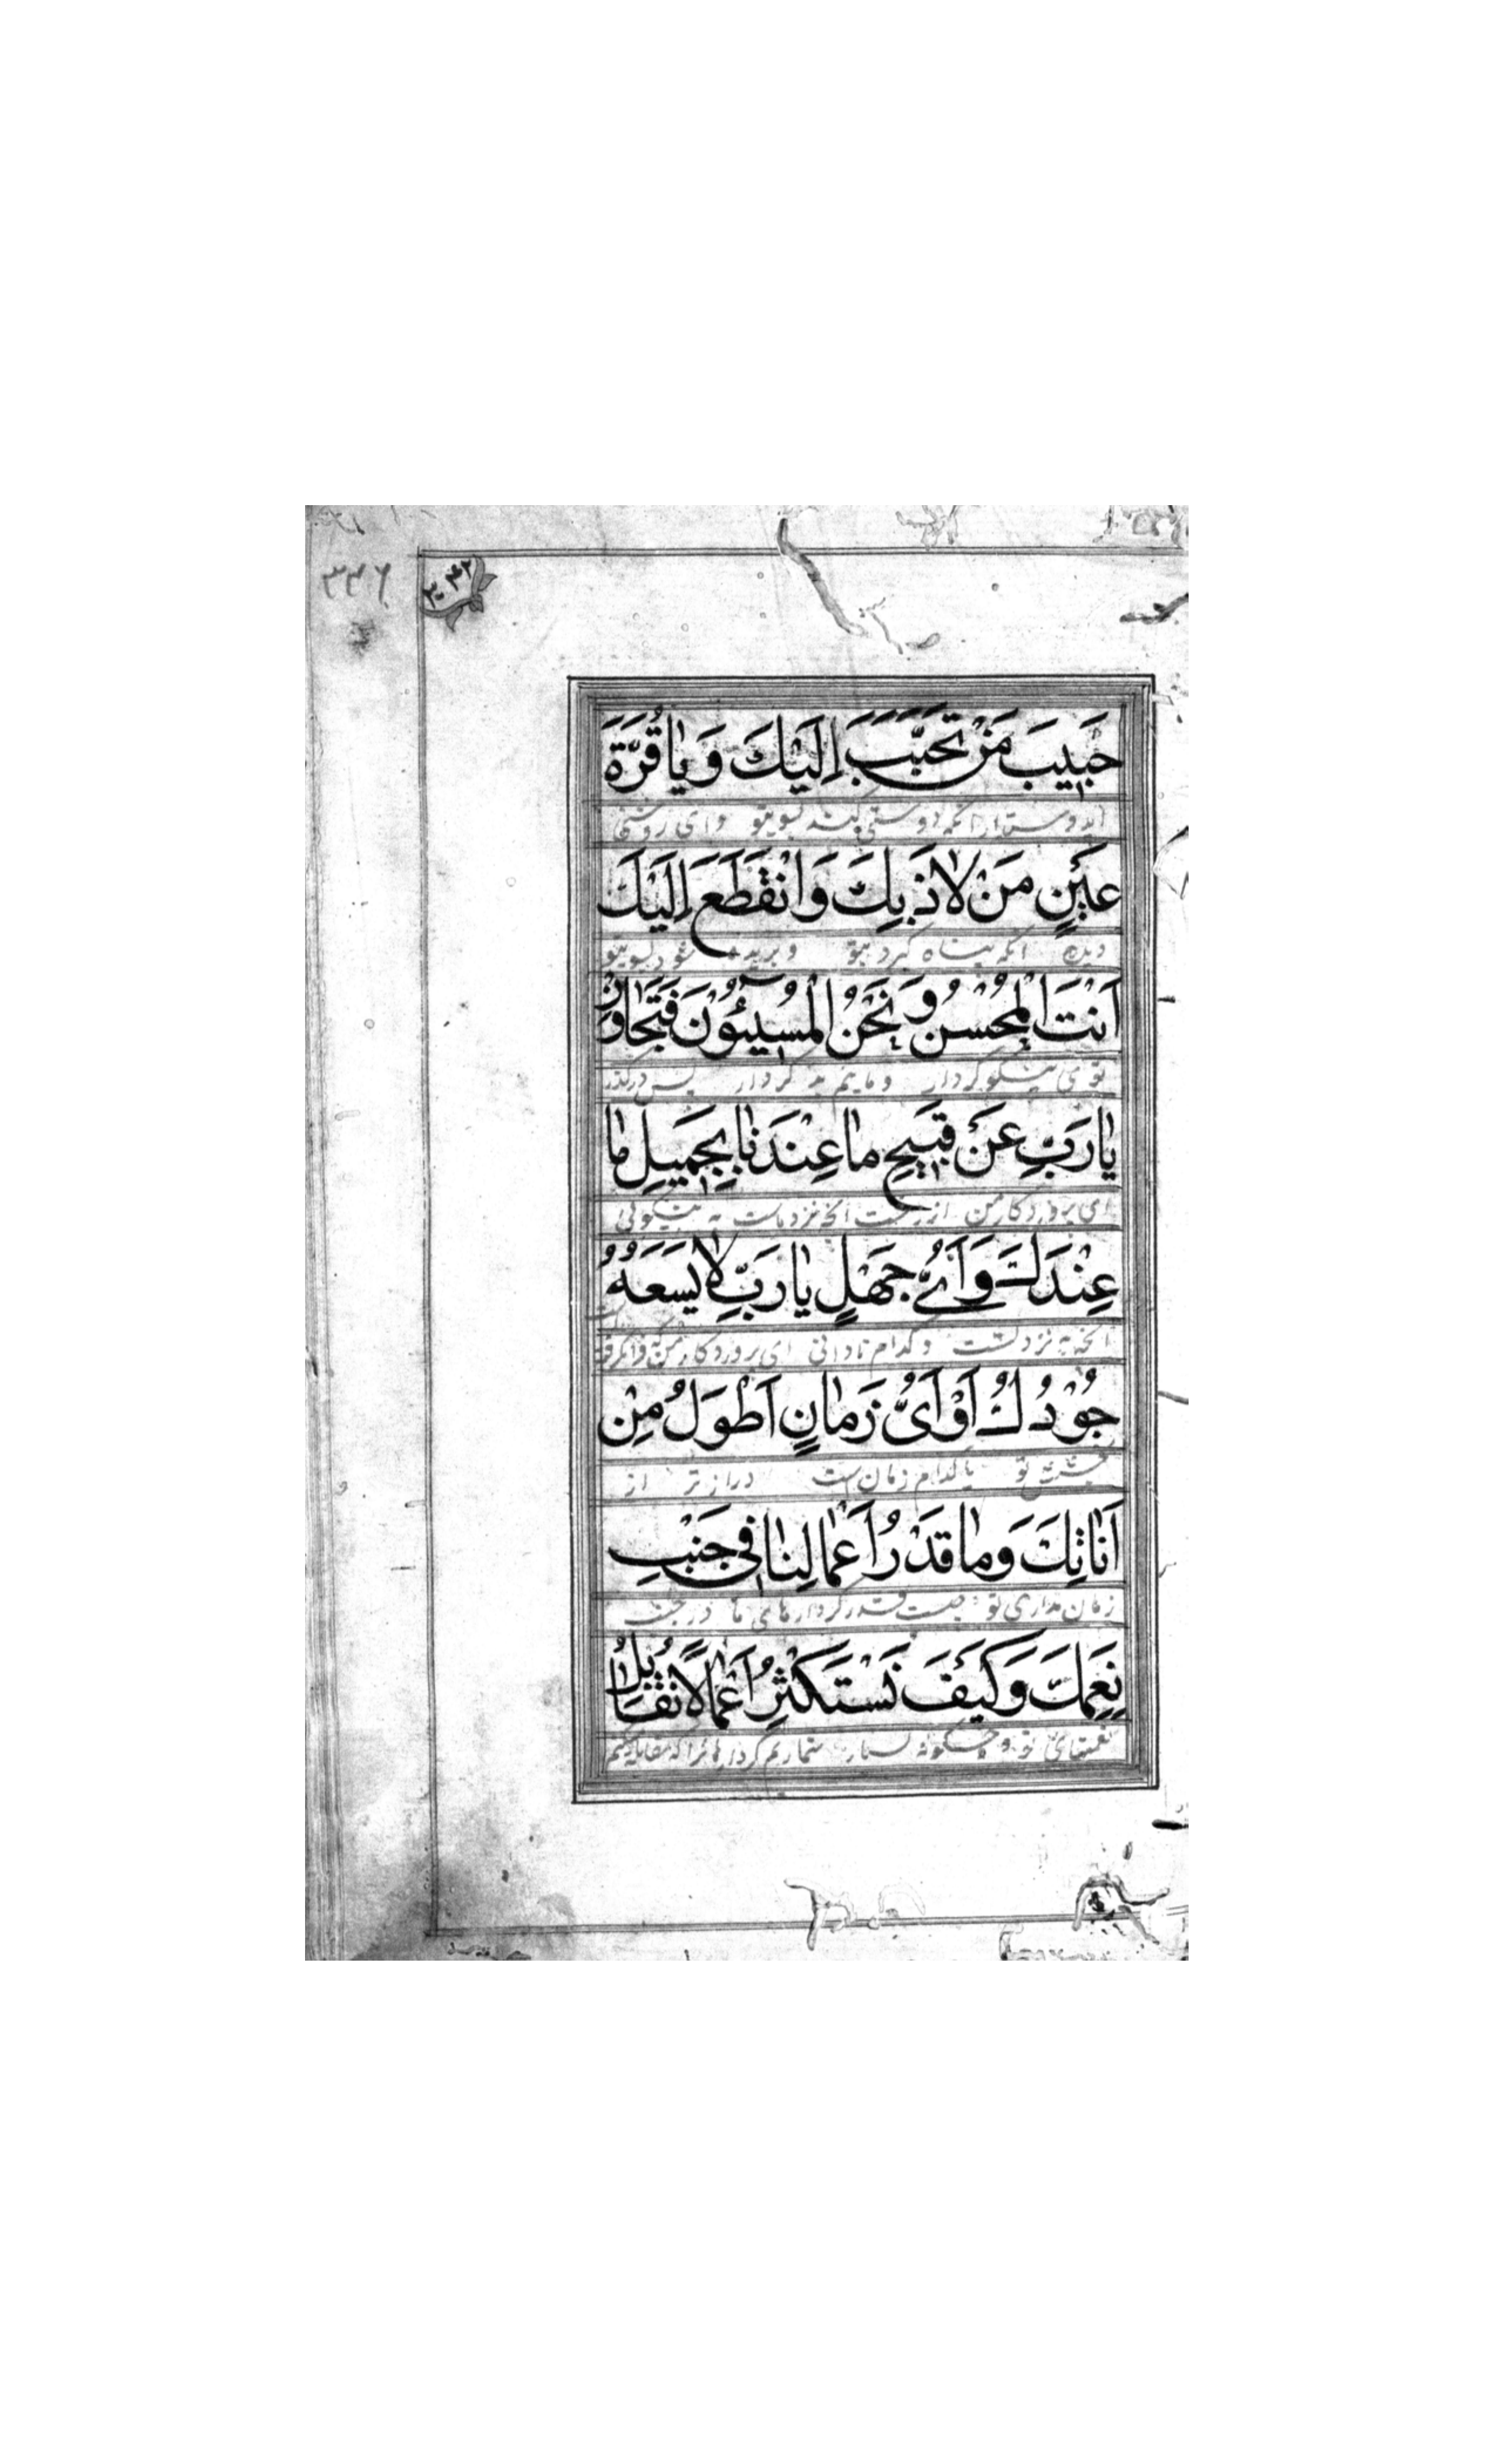 ۳۴۶
حَبيبَ مَنْ تَحَبَّبَ اِلَيْكَ وَ يٰا قُرَّةَ
ای دوستدار انکه دوستی کند بسویتو وای روشنی
عَيْنِ مَنْ لاٰذَ بِكَ وَ انْقَطَعَ اِلَيْكَ
دیده انکه پناه گیرد بتو و بریده خود بسویتو
اَنْتَ الْمُحْسِنُ وَ نَحْنُ الْمُسيۤئُونَ فَتَجٰاوَزْ
توئی نیکوکردار و مائیم بد کردار پس درگذر
يٰا رَبِّ عَنْ قَبيحِ مٰا عِنْدَنٰا بِجَميلِ مٰا
ای پروردکار من از زشت آنچه نزد ماست به نیکوئی
عِنْدَكَ وَ اَىُّ جَهْلٍ يٰا رَبِّ لاٰ يَسَعَهُ
آنچه به نزد تست و کدام نادانی ای پروردکار من که فرانگرفته
جُوْدُكَ اَوْ اَىُّ زَمٰانٍ اَطْوَلُ مِنْ
بخشش تو یا کدام زمان است دراز تر از
اَنٰاتِكَ وَ مٰا قَدْرُ اَعْمٰالِنٰا فى جَنْبِ
زمان مداری تو چیست قدر کردارهای ما در جنب
نِعَمِكَ وَ كَيْفَ نَسْتَكْثِرُ اَعْمٰالاً نُقٰابِلُ
نعمتهای تو و چگونه بسیار شماریم کردارها را که مقابله کنیم